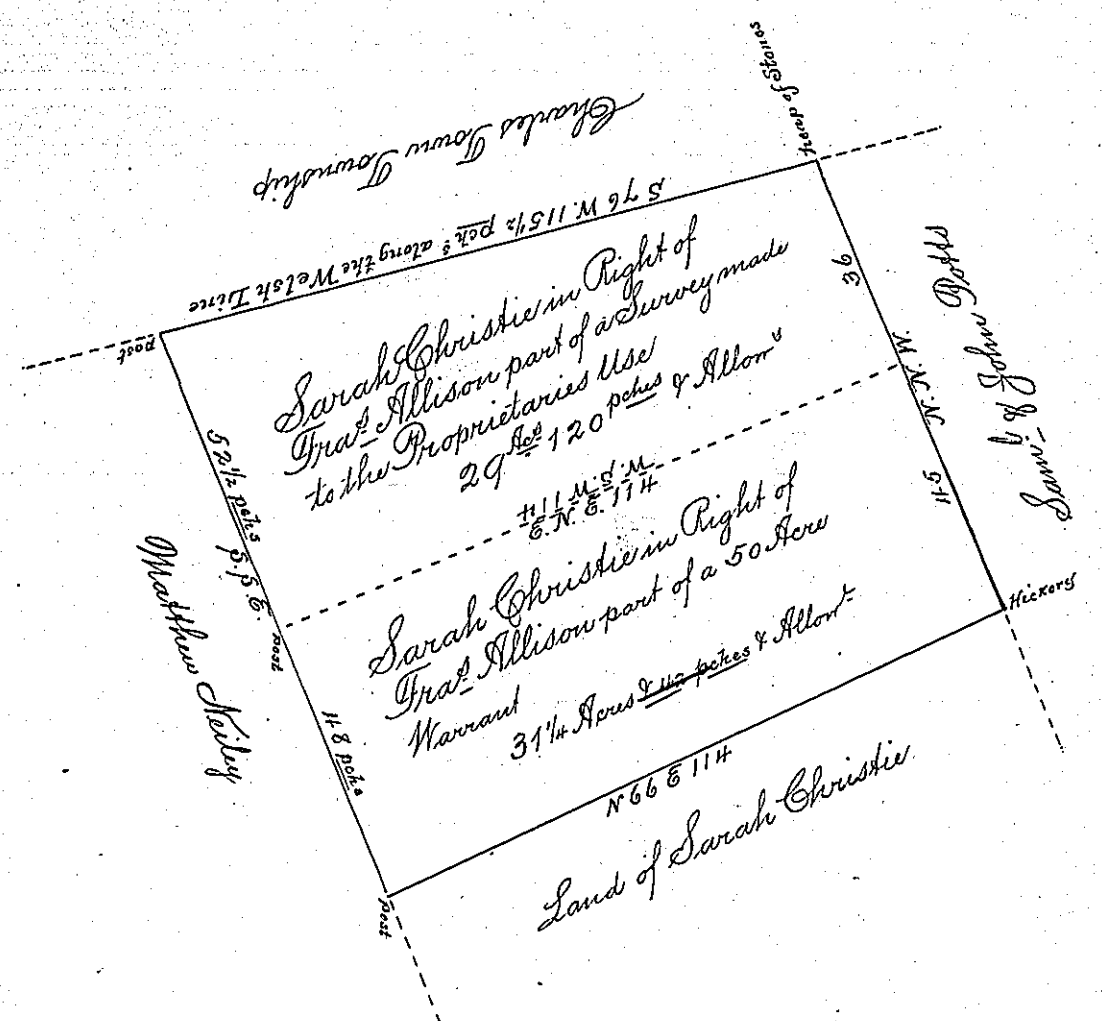 Charles Town Township
Heap of Stones
S 76 W. 115 1/2 pchs along the Welsh Line
post
Sarah Christie in Right of
Fras. Allison part of a Survey made
to the Proprietaries Use
29 Acs 120 pches & Allows
36
N. N. W.
45
Saml. & John Potts
W. S. W 114
E. N. E. 114
52 1/2 pchs
S. S. E.
post
48 pchs
Matthew Neiley
Sarah Christie in Right of
Fras. Allison part of a 50 Acre
Warrant
31 1/4 Acres & 42 pches & Allowe
Hickory
N 66 E 114
Post
Land of Sarah Christie